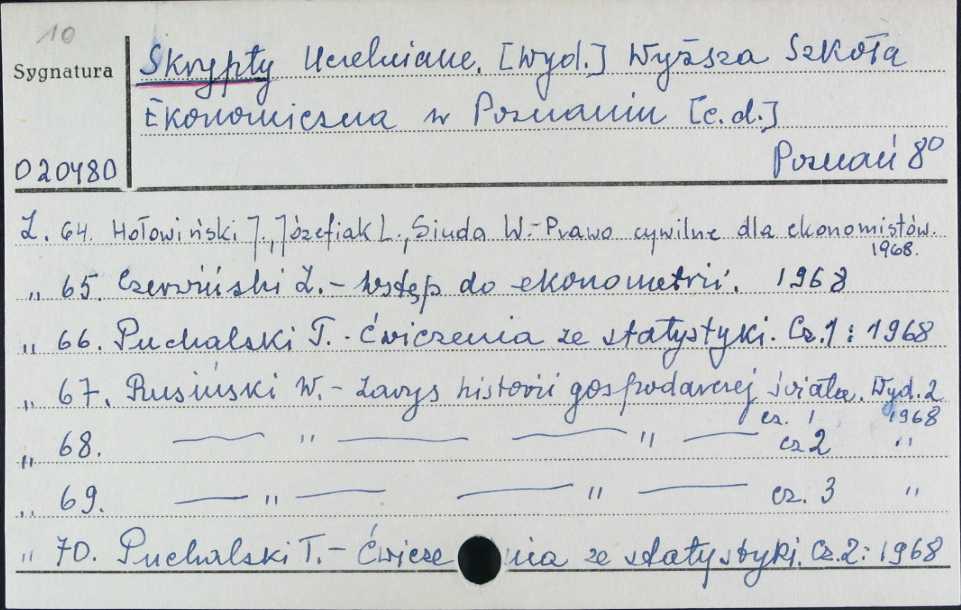 10
Sygnatura
Skrypty Uczelniane. [Wyd.] Wyższa Szkoła
Ekonomiczna w Poznaniu [c.d.]
020480
Poznań 8°
Z. 64. Hołowiński J., Józefiak L., Siuda W. - Prawo cywilne dla ekonomistów.
1968.
„ 65. Czerwiński Z. - Wstęp do ekonometrii. 1968
„ 66. Puchalski T. - Ćwiczenia ze statystyki. Cz. 1: 1968
„ 67. Rusiński W. - Zarys historii gospodarczej świata. Wyd. 2
cz. 1 1968
„ 68. — " — — " — cz 2 "
„ 69. — " — — " — cz. 3 "
„ 70. Puchalski T. - Ćwiczenia ze statystyki. Cz. 2: 1968